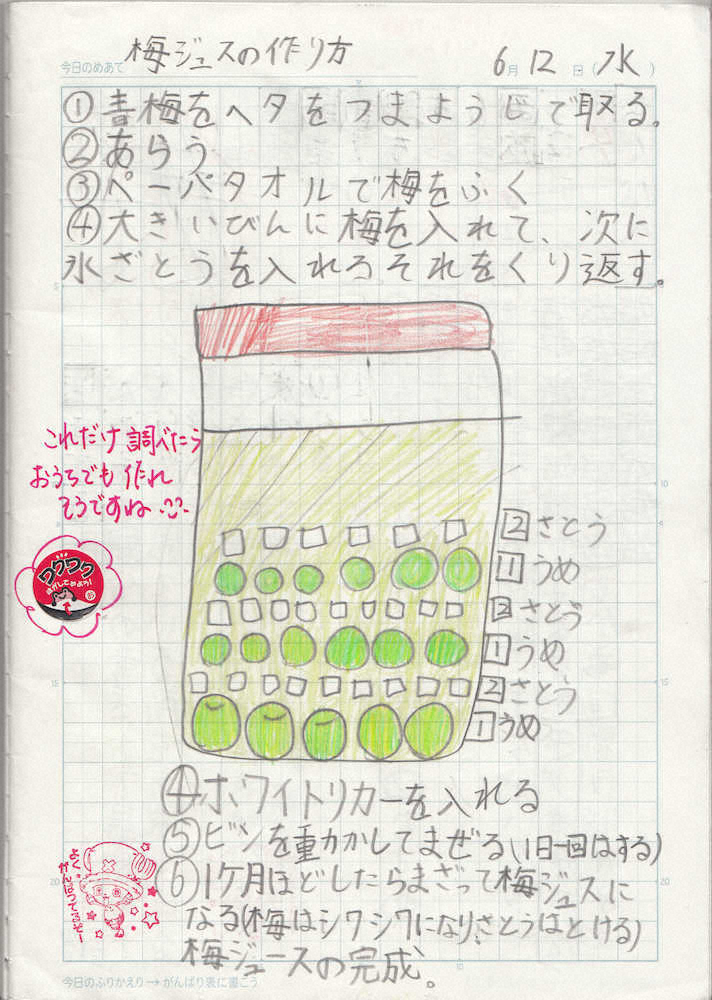 今日のめあて 梅ジュスの作り方 6月12日(水)
①青梅をヘタをつまようじで取る。
②あらう
③ペーパタオルで梅をふく
④大きいびんに梅を入れて、次に
氷ざとうを入れろそれをくり返す。
これだけ調べたら
おうちでも作れ
そうですね
ワクワク
2さとう
1うめ
2さとう
1うめ
2さとう
1うめ
④ホワイトリカーを入れる
⑤ビンを重力かしてまぜる(1日一回はする)
⑥1ケ月ほどしたらまざって梅ジュスに
なる(梅はシワシワになり、さとうはとける)
梅ジュースの完成。
よく
がんばってるぞー
5
10
15
20
5
10
15
20
10
今日のふりかえり→がんばり表に書こう